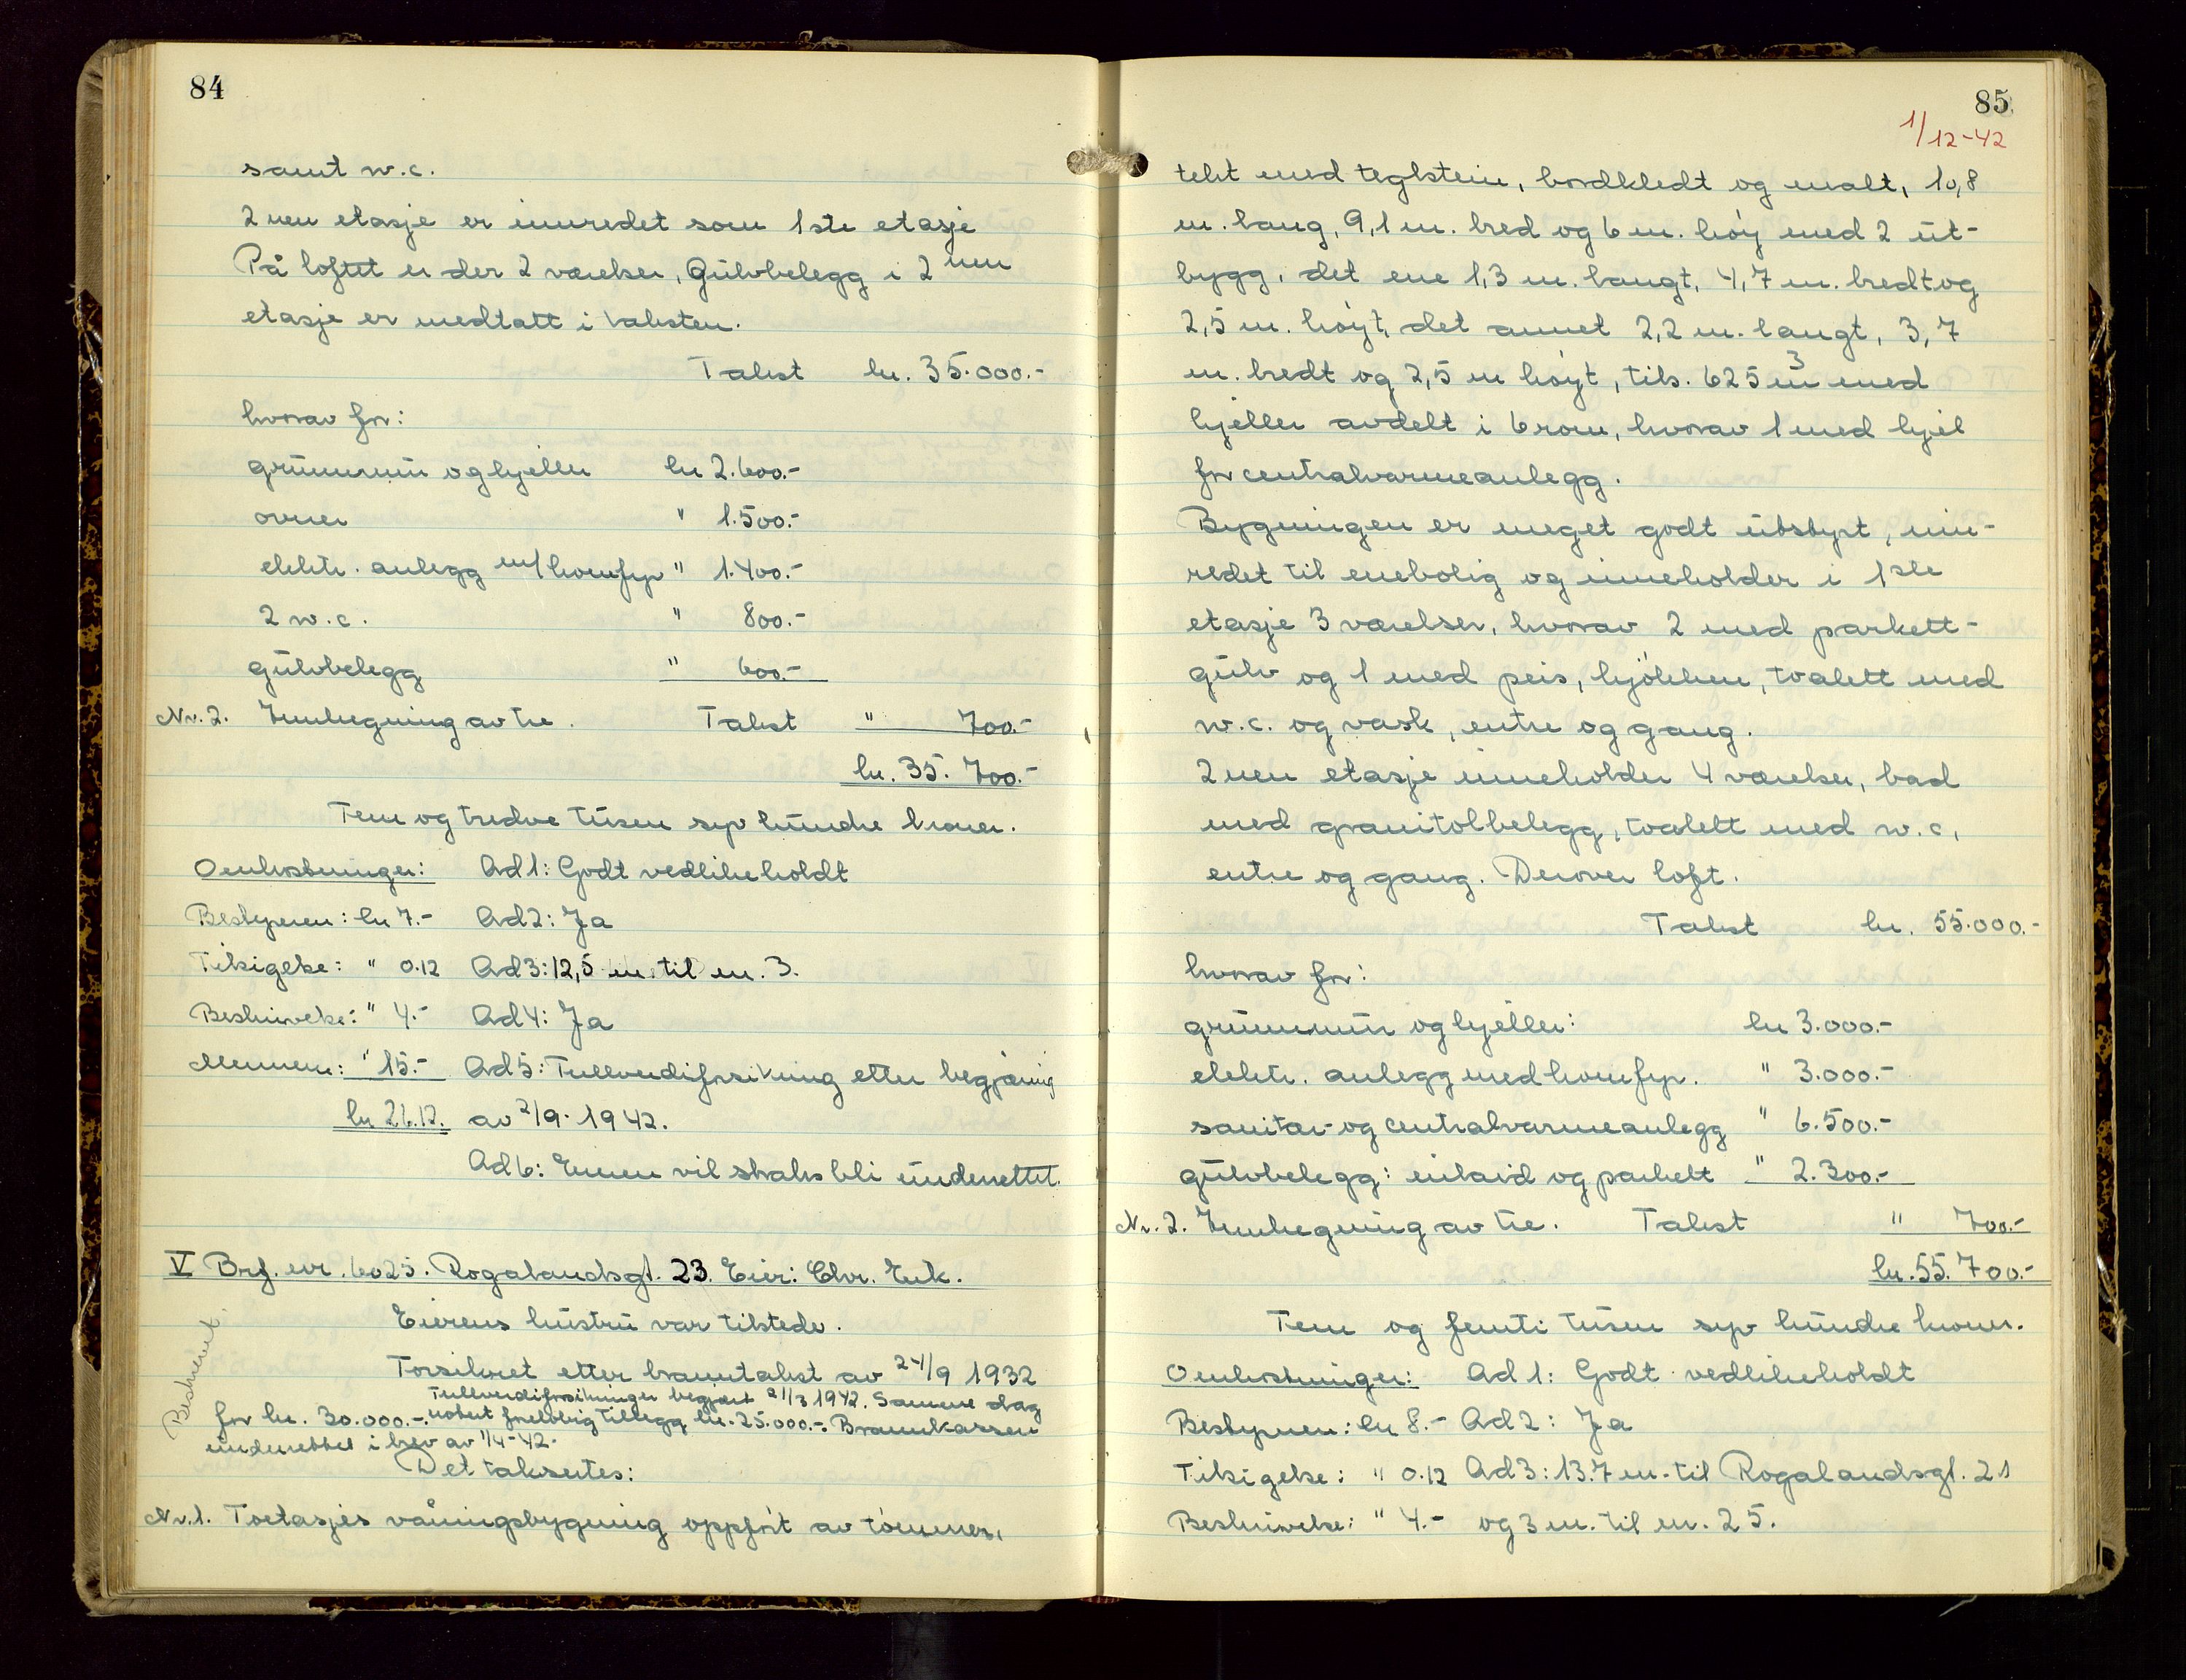 84
samt w.c.
2nen etasje er innredet som 1ste etasje
På loftet er der 2 værelser, Gulvbelegg i 2nen
etasje er medtatt i taksten.
Takst kr. 35.000.-
hvorav for:
grunnmur og kjeller kr 2.600.-
ovner " 1.500.-
elektr. anlegg m/komfyr " 1.400.-
2 w.c. " 800.-
gulvbelegg " 600.-
Nr. 2. Innhegning av tre. Takst " 700.-
kr. 35.700.-
Fem og tredve tusen syv hundre kroner.
Omkostninger: Ad 1: Godt vedlikeholdt
Bestyreren: kr 7.- Ad 2: Ja
Tilsigelse: " 0.12 Ad 3: 12,5 m. til nr. 3.
Beskrivelse: " 4.- Ad 4: Ja
Mennene: " 15.- Ad 5: Fullverdiforsikring etter begjæring
kr 26.12. av 2/9. 1942.
Ad 6: Eieren vil straks bli underrettet.
V Brf. nr. 6025. Rogalandsgt. 23. Eier: Chr. Enk.
Eierens hustru var tilstede.
Beskrevet
Forsikret etter branntakst av 24/9 1932
Fullverdiforsikringen begjært 21/3 1942. Samme dag
for kr. 30.000.-. notert foreløbig tillegg kr. 25.000.-. Brannkassen
underrettet i brev av 1/4-42.
Det takseres:
Nr. 1. Toetasjes våningsbygning oppført av tømmer,
85
1/12-42
tekt med teglstein, bordkledt og malt, 10,8
m. lang, 9,1 m. bred og 6 m. høy med 2 ut-
bygg, det ene 1,3 m. langt, 4,7 m. bredt og
2,5 m. høyt, det annet 2,2 m. langt, 3,7
m. bredt og 2,5 m høyt, tils. 625 m3 med
kjeller avdelt i 6 rom, hvorav 1 med kjel
for centralvarmeanlegg.
Bygningen er meget godt utstyrt, inn-
redet til enebolig og inneholder i 1ste
etasje 3 værelser, hvorav 2 med parkett-
gulv og 1 med peis, kjøkken, toalett med
w.c. og vask, entre og gang.
2nen etasje inneholder 4 værelser, bad
med granitolbelegg, toalett med w.c,
entre og gang. Derover loft.
Takst kr. 55.000.-
hvorav for:
grunnmur og kjeller: kr 3.000.-
elektr. anlegg med komfyr. " 3.000.-
sanitær- og centralvarmeanlegg " 6.500.-
gulvbelegg: inlaid og parkett " 2.300.-
Nr. 2. Innhegning av tre. Takst " 700.-
kr. 55.700.-
Fem og femti tusen syv hundre kroner.
Omkostninger: Ad 1: Godt vedlikeholdt
Bestyreren: kr 8.- Ad 2: Ja
Tilsigelse: " 0.12 Ad 3: 13.7 m. til Rogalandsgt. 21
Beskrivelse: " 4.- og 3 m. til nr. 25.